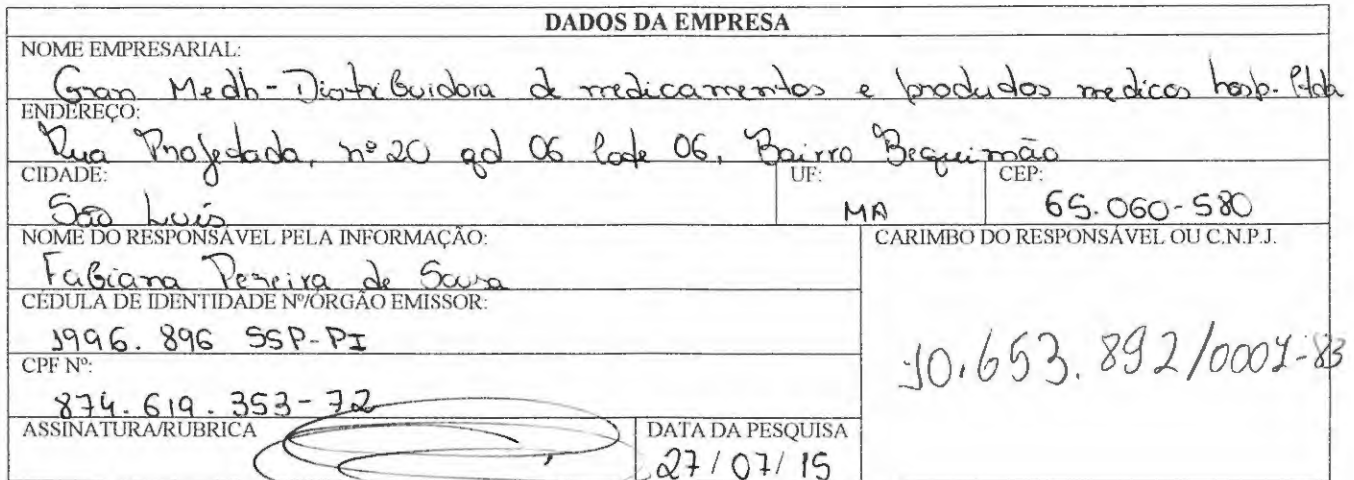 DADOS DA EMPRESA
NOME EMPRESARIAL:
Gran Medh-Distribuidora de medicamentos e produtos medicos hosp. Ltda
ENDEREÇO:
Rua Projetada, nº 20 qd 06 lote 06, Bairro Bequimão
CIDADE:
São Luís
UF:
MA
CEP:
65.060-580
NOME DO RESPONSÁVEL PELA INFORMAÇÃO:
Fabiana Pereira de Sousa
CARIMBO DO RESPONSÁVEL OU C.N.P.J.
10.653.892/0001-83
CEDULA DE IDENTIDADE Nº/ÓRGÃO EMISSOR:
1996.896 SSP-PI
CPF Nº:
874.619.353-72
ASSINATURA/RUBRICA
DATA DA PESQUISA
27/07/15